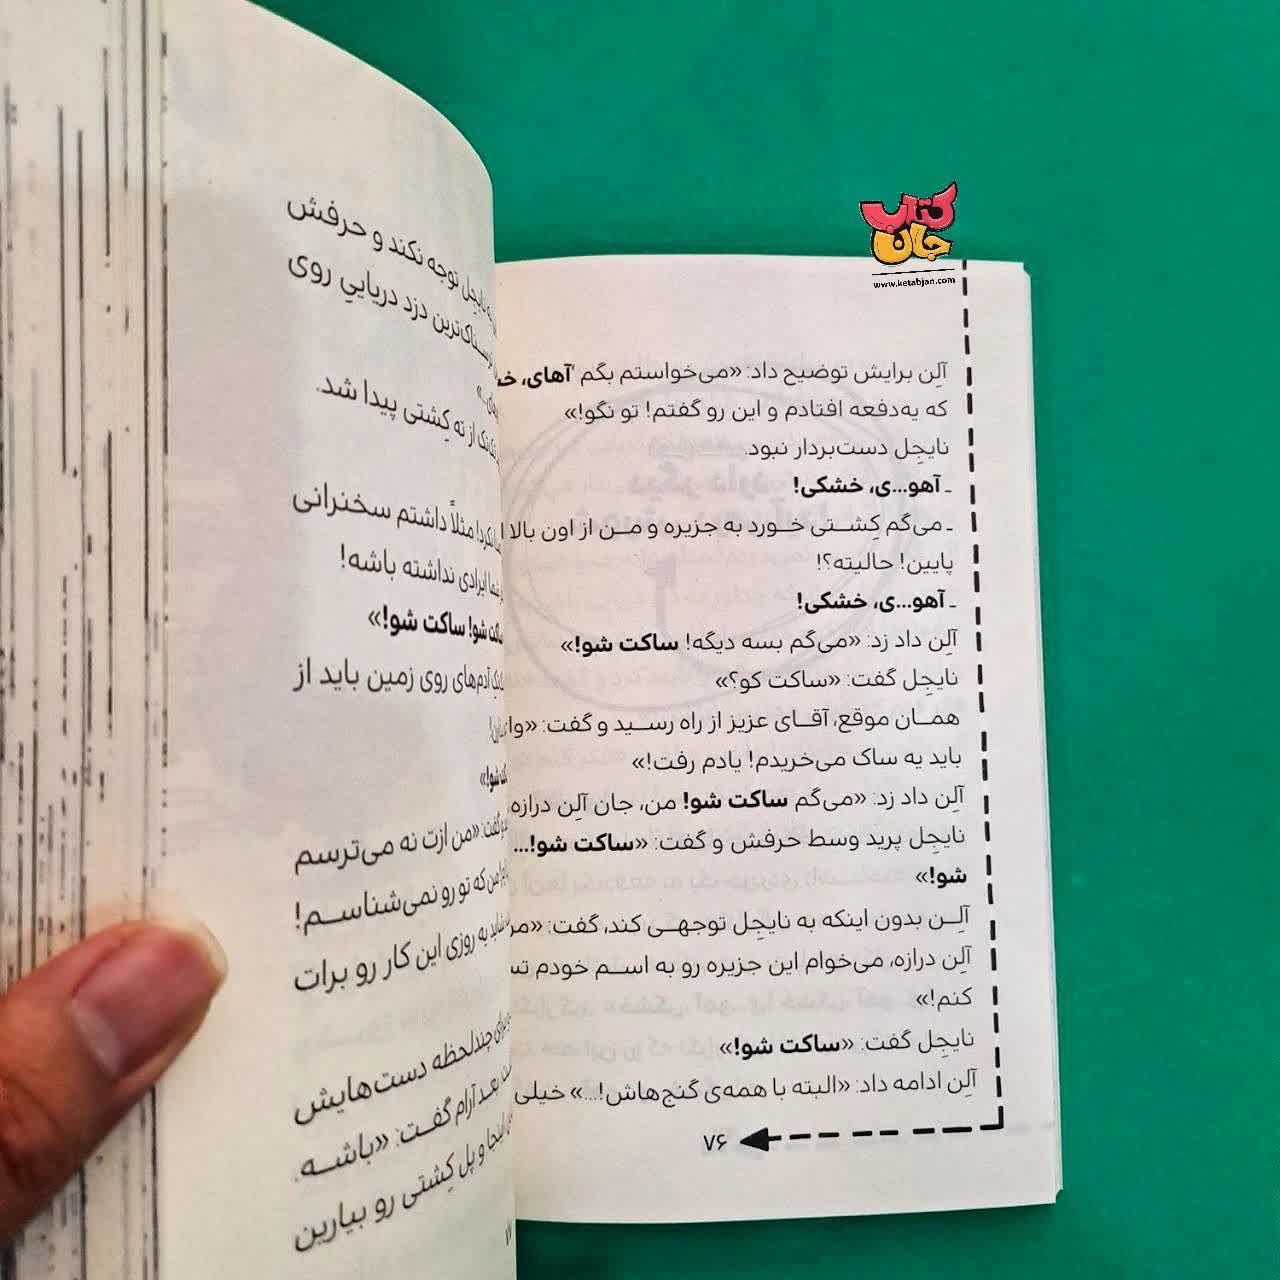 کتاب
جان
www.ketabjan.com
آلِن برایش توضیح داد: «می‌خواستم بگم 'آهای،
که یه‌دفعه افتادم و این رو گفتم! تو نگو!»
نایجِل دست‌بردار نبود.
ـ آهو...ی، خشکی!
ـ می‌گم کِشتی خورد به جزیره و من از اون بالا
پایین! حالیته؟!
ـ آهو...ی، خشکی!
آلِن داد زد: «می‌گم بسه دیگه! ساکت شو!»
نایجِل گفت: «ساکت کو؟»
همان موقع، آقای عزیز از راه رسید و گفت:
باید یه ساک می‌خریدم! یادم رفت!»
آلِن داد زد: «می‌گم ساکت شو! من، جان آلِن درازه،
نایجِل پرید وسط حرفش و گفت: «ساکت شو!...
شو!»
آلِن بدون اینکه به نایجِل توجهی کند، گفت:
آلِن درازه، می‌خوام این جزیره رو به اسم خودم
کنم!»
نایجِل گفت: «ساکت شو!»
آلِن ادامه داد: «البته با همه‌ی گنج‌هاش!...» خیلی
۷۶
نایجِل توجه نکند و حرفش
دزد دریاییِ روی
از ته کِشتی پیدا شد.
مثلاً داشتم سخنرانی
ایرادی نداشته باشه!
ساکت شو! ساکت شو!»
آدم‌های روی زمین باید از
شو!»
گفت: «من ازت نه می‌ترسم
من که تو رو نمی‌شناسم!
شاید یه روزی این کار رو برات
چندلحظه دست‌هایش
بعد آرام گفت: «باشه.
اینجا و پل کِشتی رو بیارین